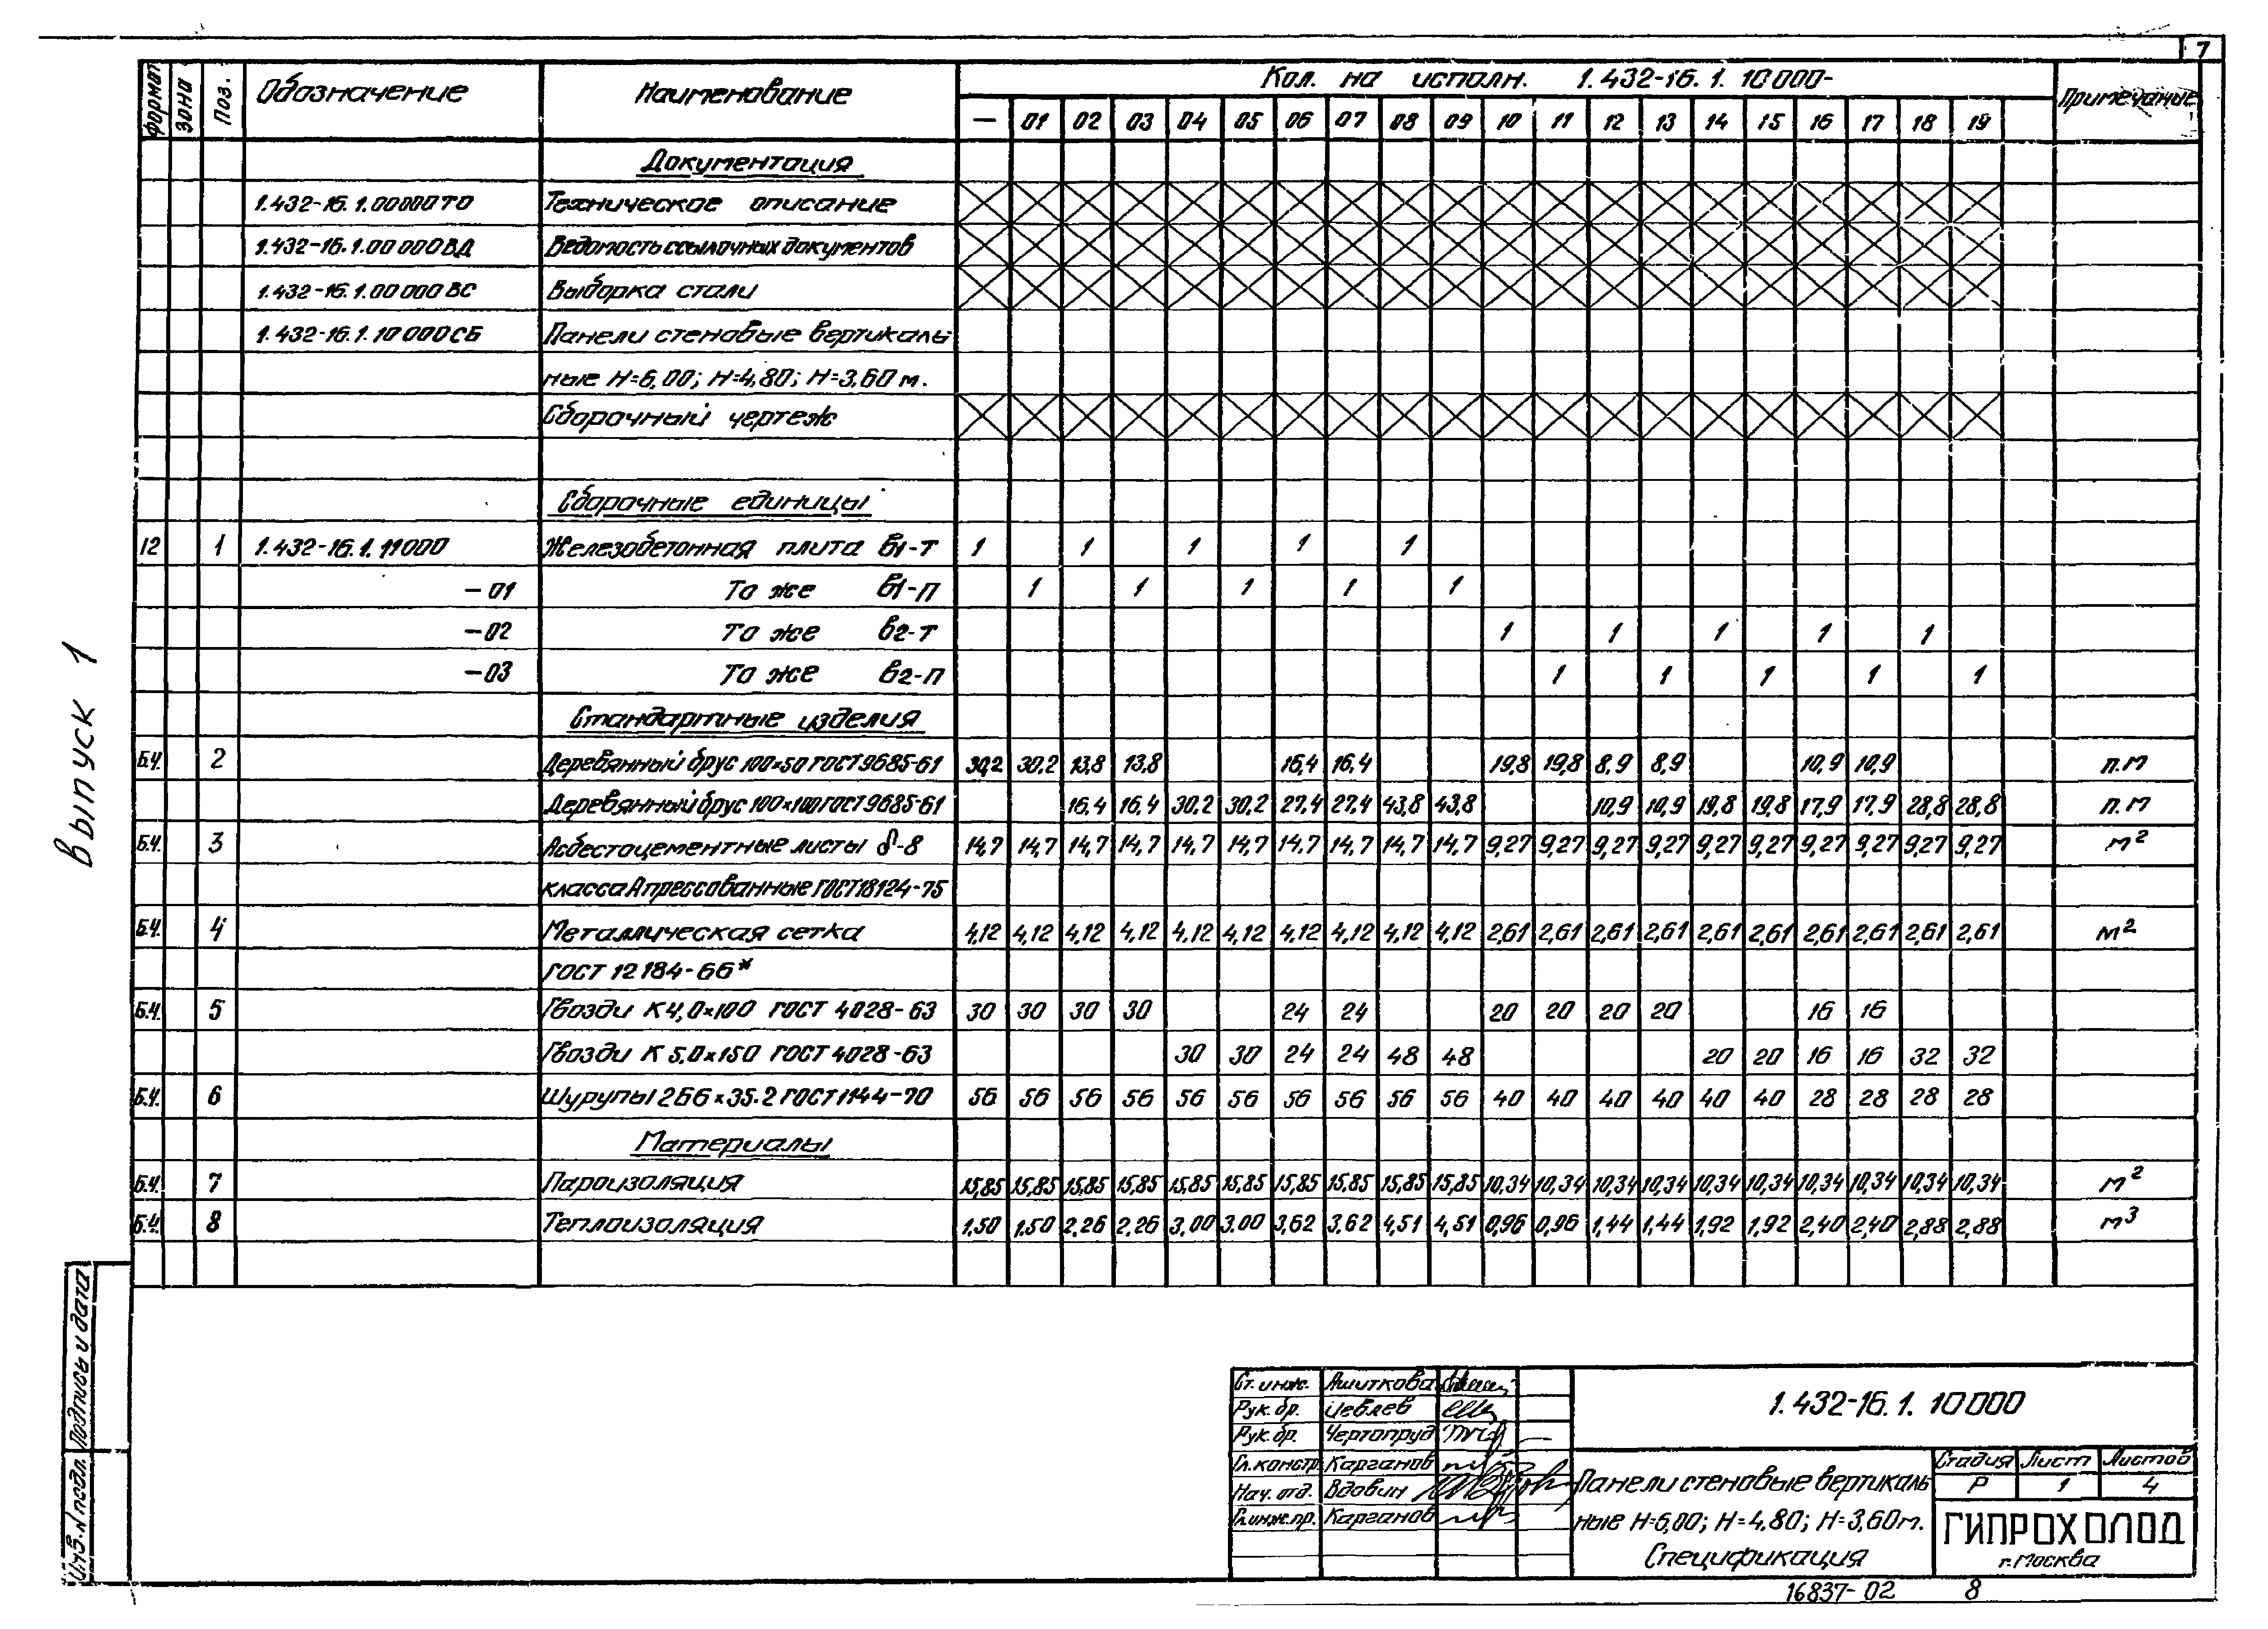 7
Формат Зона Поз. Обозначение Наименование Кол. на исполн. 1.432-16.1.10000- Примечание
— 01 02 03 04 05 06 07 08 09 10 11 12 13 14 15 16 17 18 19
Документация
1.432-16.1.00000ТО Техническое описание
1.432-16.1.00000ВД Ведомость ссылочных документов
1.432-16.1.00000ВС Выборка стали
1.432-16.1.10000СБ Панели стеновые вертикаль
ные Н=6,00; Н=4,80; Н=3,60м.
Сборочный чертеж
Сборочные единицы
12 1 1.432-16.1.11000 Железобетонная плита В1-Т 1 1 1 1 1
-01 То же В1-П 1 1 1 1 1
-02 То же В2-Т 1 1 1 1 1
-03 То же В2-П 1 1 1 1 1
Стандартные изделия
Б.Ч. 2 Деревянный брус 100×50 ГОСТ 9685-61 30,2 30,2 13,8 13,8 16,4 16,4 19,8 19,8 8,9 8,9 10,9 10,9 п.м
Деревянный брус 100×100 ГОСТ 9685-61 16,4 16,4 30,2 30,2 27,4 27,4 43,8 43,8 10,9 10,9 19,8 19,8 17,9 17,9 28,8 28,8 п.м
Б.Ч. 3 Асбестоцементные листы δ-8 14,7 14,7 14,7 14,7 14,7 14,7 14,7 14,7 14,7 14,7 9,27 9,27 9,27 9,27 9,27 9,27 9,27 9,27 9,27 9,27 м²
класса А прессованные ГОСТ 18124-75
Б.Ч. 4 Металлическая сетка 4,12 4,12 4,12 4,12 4,12 4,12 4,12 4,12 4,12 4,12 2,61 2,61 2,61 2,61 2,61 2,61 2,61 2,61 2,61 2,61 м²
ГОСТ 12184-66*
Б.Ч. 5 Гвозди К 4,0×100 ГОСТ 4028-63 30 30 30 30 24 24 20 20 20 20 16 16
Гвозди К 5,0×150 ГОСТ 4028-63 30 30 24 24 48 48 20 20 16 16 32 32
Б.Ч. 6 Шурупы 2Б6×35.2 ГОСТ 1144-70 56 56 56 56 56 56 56 56 56 56 40 40 40 40 40 40 28 28 28 28
Материалы
Б.Ч. 7 Пароизоляция 15,85 15,85 15,85 15,85 15,85 15,85 15,85 15,85 15,85 15,85 10,34 10,34 10,34 10,34 10,34 10,34 10,34 10,34 10,34 10,34 м²
Б.Ч. 8 Теплоизоляция 1,50 1,50 2,26 2,26 3,00 3,00 3,62 3,62 4,51 4,51 0,96 0,96 1,44 1,44 1,92 1,92 2,40 2,40 2,88 2,88 м³
Выпуск 1
Инв.N подл. Подпись и дата
Ст. инж. Ашиткова
Рук. бр. Цевлев
Рук. бр. Чертопруд
Гл. констр. Карганов
Нач. отд. Вдовин
Гл.инж.пр. Карганов
1.432-16.1.10000
Панели стеновые вертикаль
ные Н=6,00; Н=4,80; Н=3,60м.
Спецификация
Стадия Лист Листов
Р 1 4
ГИПРОХОЛОД
г. Москва
16837-02 8